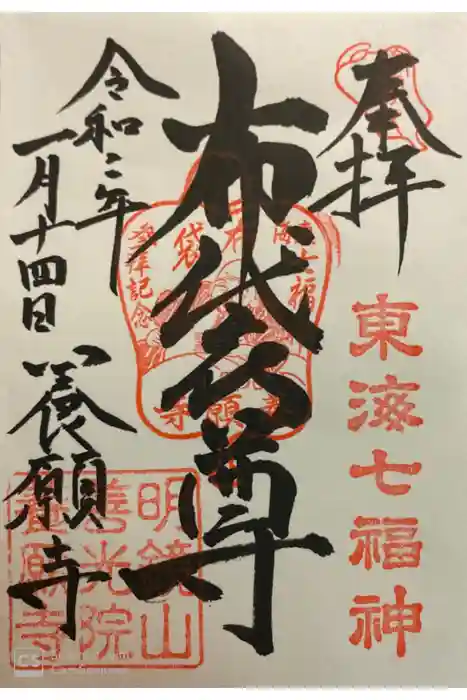 奉拝
東海七福神
布袋尊
東海七福
布袋
参拝記念
養願寺
令和二年
一月十四日
養願寺
明鏡山
善光院
養願寺
CS CamScanner